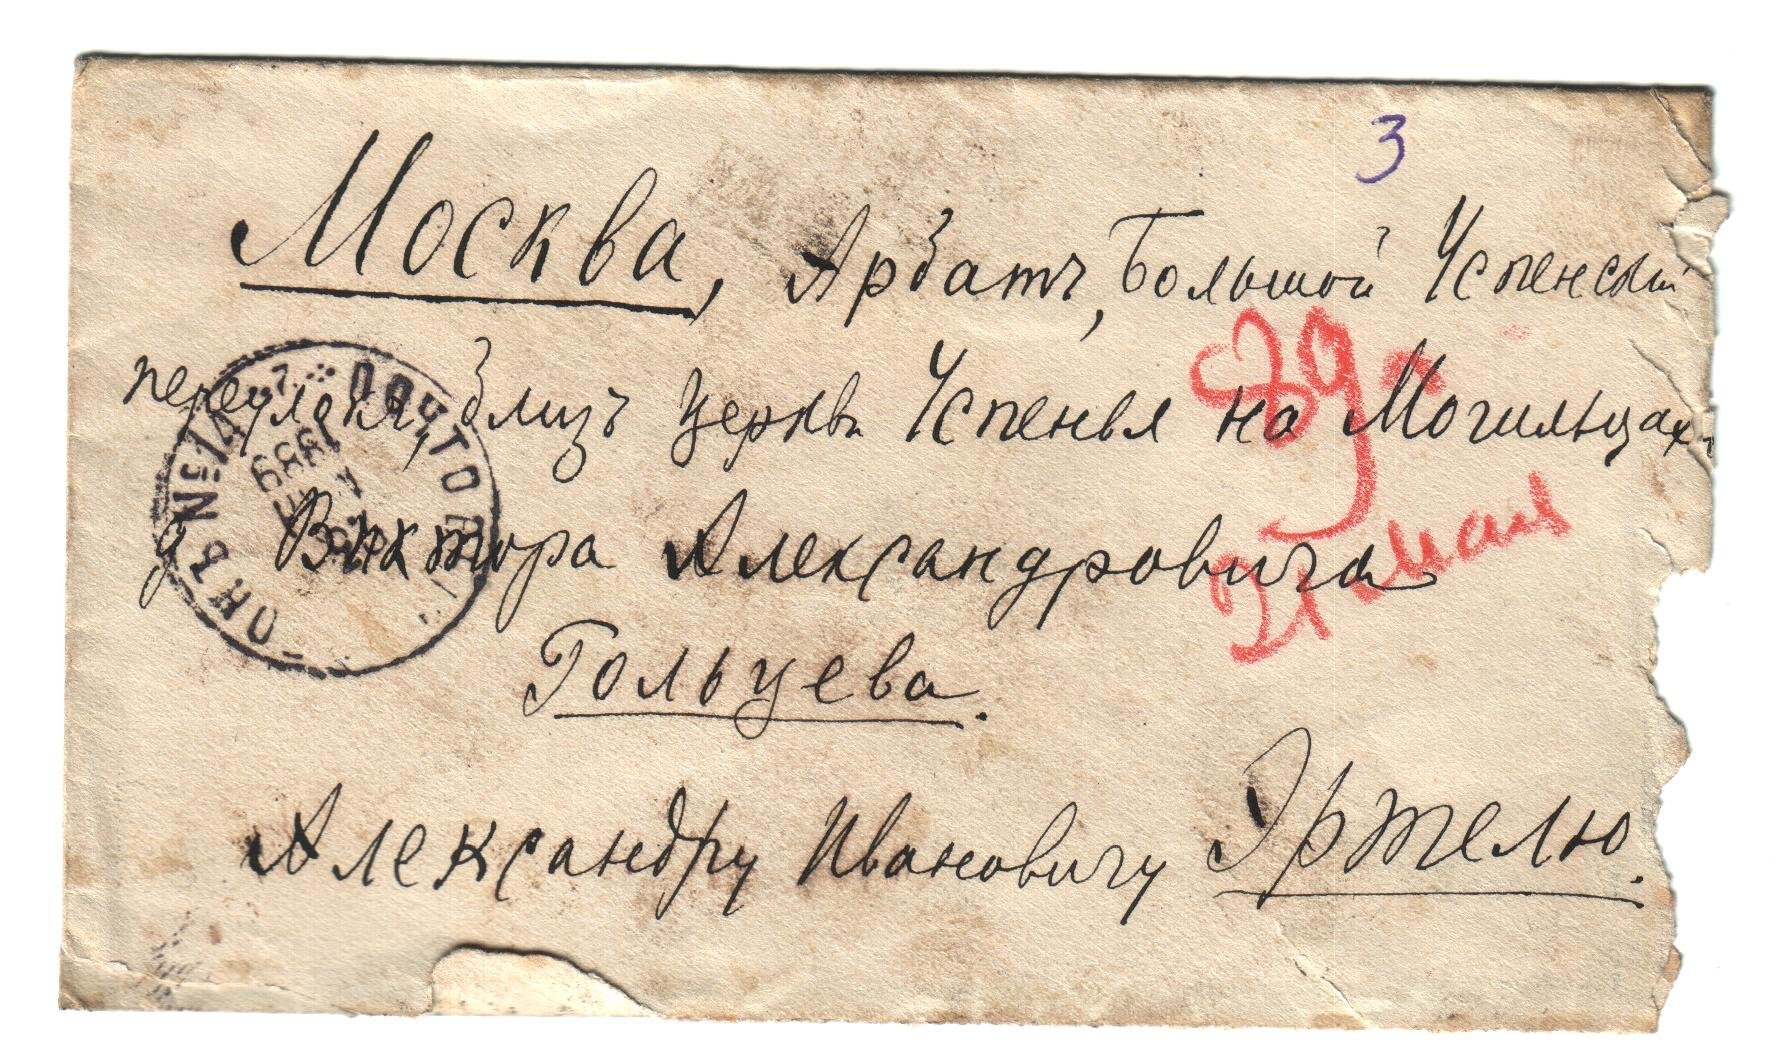 3
Москва, Арбатъ, Большой Успенскій
переулокъ, близъ церкви Успенья на Могильцахъ
д. Виктора Александровича
Гольцева.
Александру Ивановичу Эртелю.
89 г.
21 мая
ПОЧТОВ
№14
1889